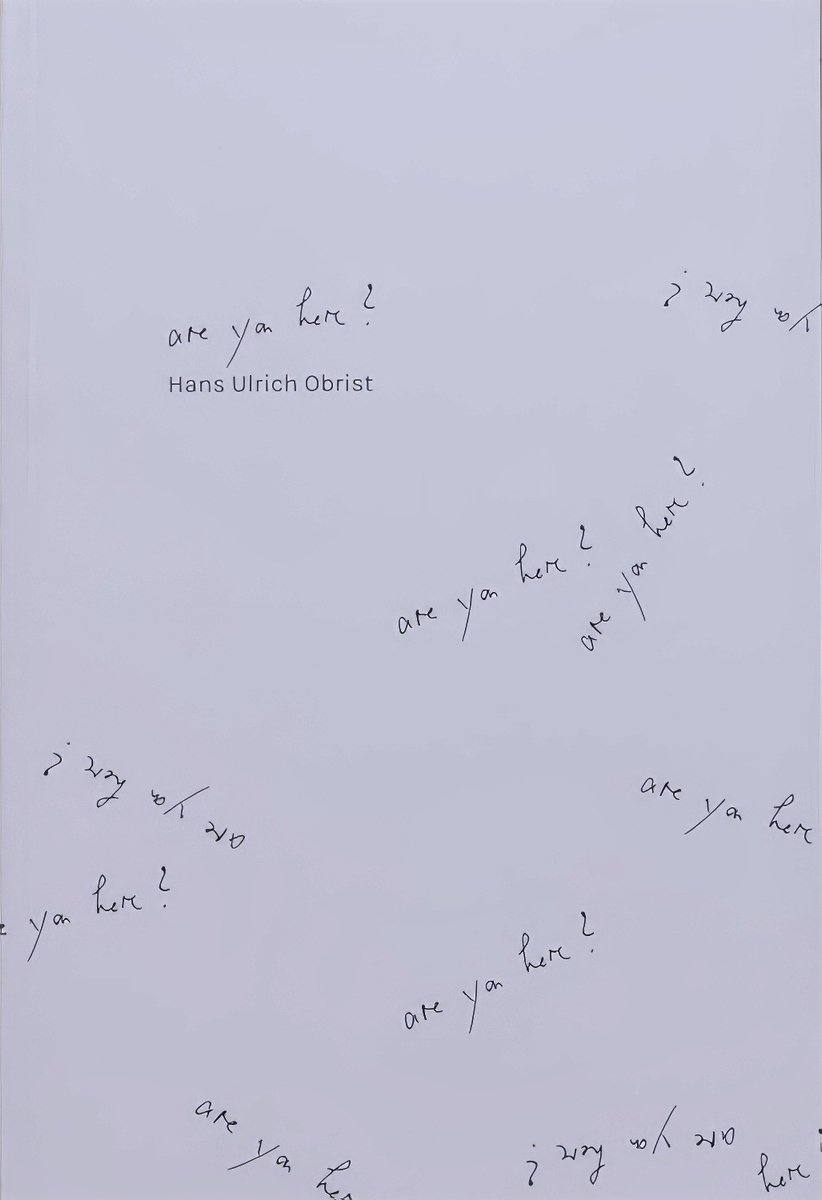 are you here?
you here?
Hans Ulrich Obrist
are you here?
are you here?
are you here?
are you here
you here?
are you here?
are you here
are you here?
here